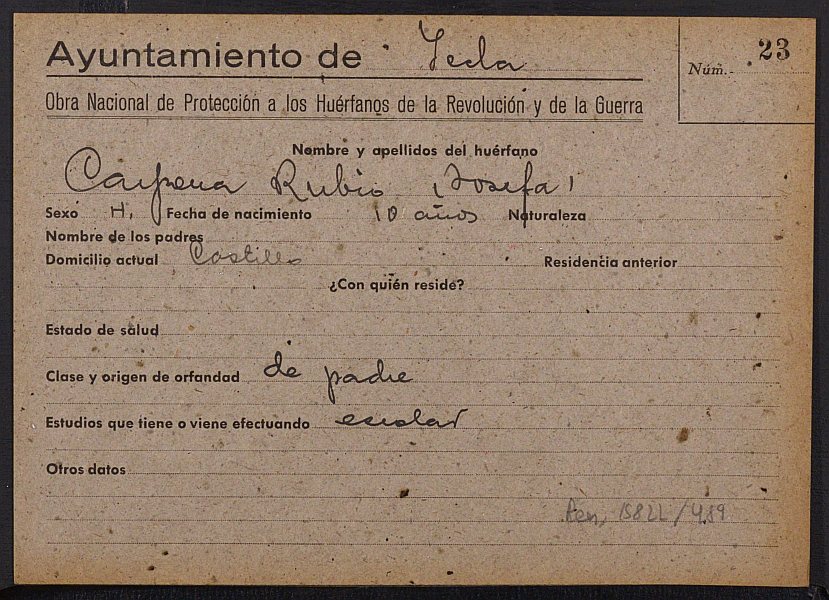 Ayuntamiento de Yecla
Núm.- 23
Obra Nacional de Protección a los Huérfanos de la Revolución y de la Guerra
Nombre y apellidos del huérfano
Carpena Rubio (Josefa)
Sexo H. Fecha de nacimiento 10 años Naturaleza
Nombre de los padres
Domicilio actual Castillo Residencia anterior
¿Con quién reside?
Estado de salud
Clase y origen de orfandad de padre
Estudios que tiene o viene efectuando escolar
Otros datos